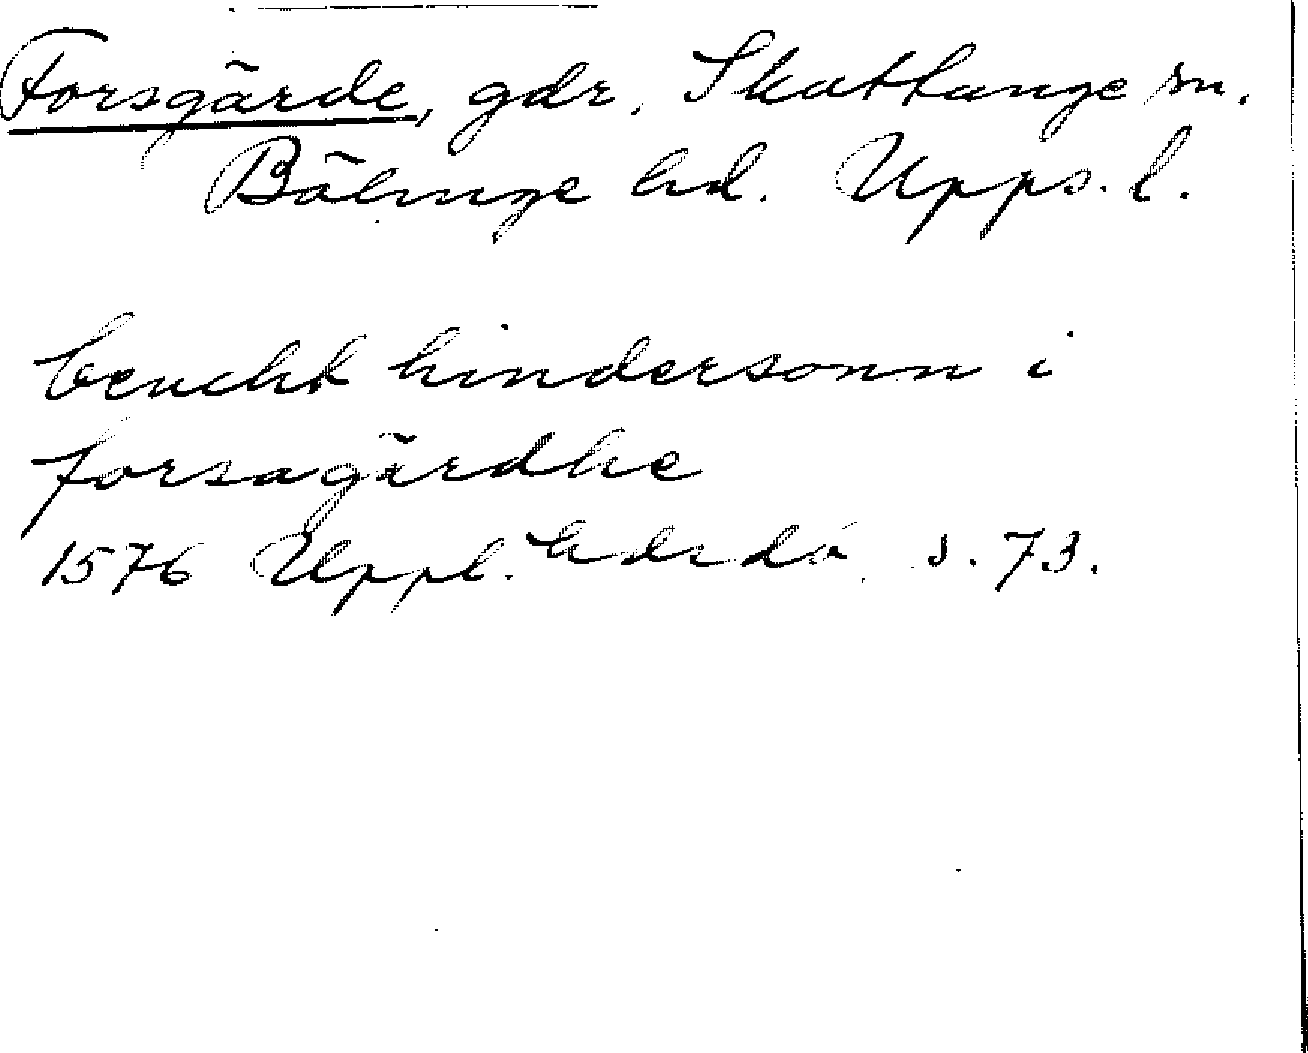 Forsgärde, gdr, Skuttunge sn.
Bälinge hd. Upps. l.
benckt hindersonn i
forsagärdhe
1576 Uppl. hdr då s. 73.